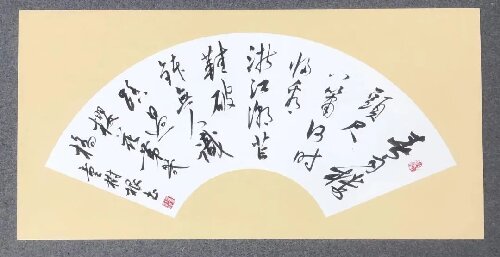 春雨楼
頭尺
八箫何时
归看
浙江潮芒
鞋破
钵无人識
踏過
櫻花第几
橋